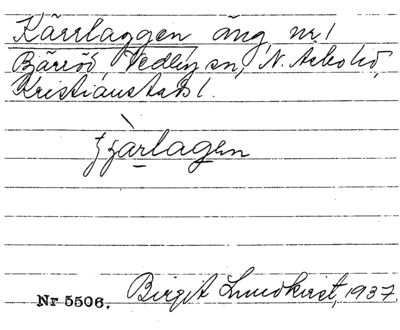 Kärrlaggen äng, nr 1
Bärröd, Vedby sn, N. Åsbo hd,
Kristianstads l.
tjàrlagen
Nr 5506. Birgit Lundkvist, 1937.